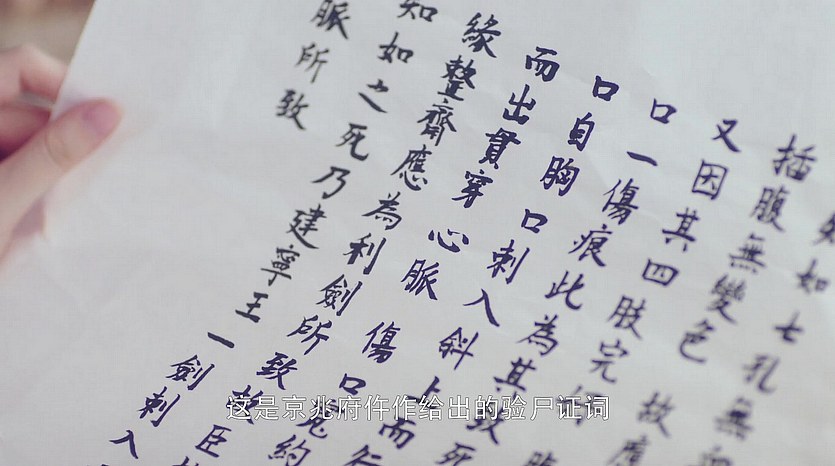 知如七孔無
插腹無變色 故應
又因其四肢完
口一傷痕此為其致死
口自胸口刺入斜上而行
而出貫穿心脈 傷口寬約
緣整齊應為利劍所致 故臣
知如之死乃建寧王一劍刺入
脈所致
这是京兆府仵作给出的验尸证词